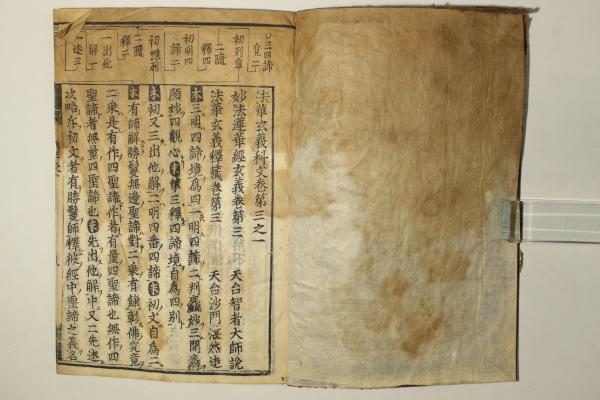 ○三四諦
初列章
二隨
釋四
初明四
諦二
二隨
釋二
一出他
解一
一述三
法華玄義科文卷第三之一
妙法蓮華經玄義卷第三 天台智者大師說
法華玄義釋籤卷第三 天台沙門湛然述
三明四諦境為四一明四諦二判麤妙三開麤
顯妙四觀心 三釋四諦境自為四別
初又三出他解二明四番四諦 初文自為二
有師解勝鬘無邊聖諦對二乗有餘彰佛究竟
二乗是有作四聖諦作者有量四聖諦也無作四
聖諦者無量四聖諦也 先出他解中又二先述
次略斥初文者有勝鬘師釋彼經中聖諦之義名